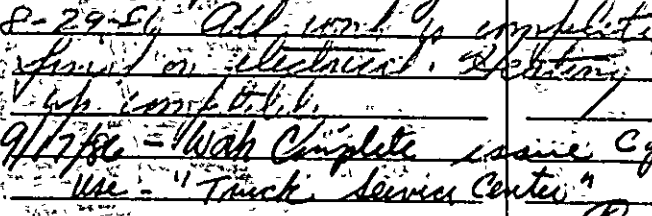 8-29-86 All work is complete
final on electrical. Heating
up complete.
9/17/86 - Work Complete issue C
Use - "Truck Service Center"